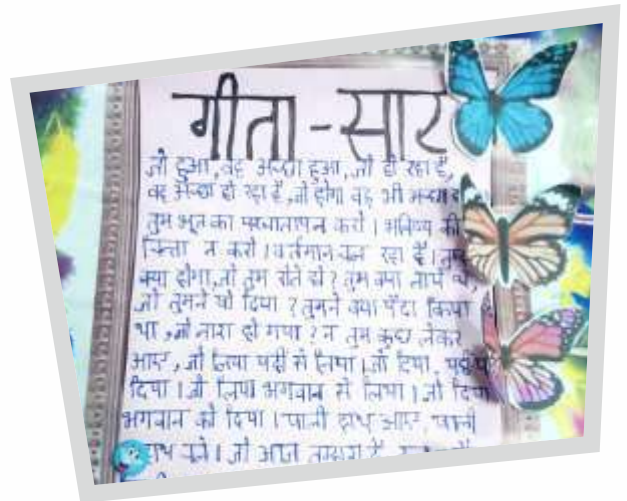 गीता - सार
जो हुआ, वह अच्छा हुआ, जो हो रहा है,
वह अच्छा हो रहा है, जो होगा वह भी अच्छा
तुम भूत का पश्चाताप न करो । भविष्य की
चिन्ता न करो । वर्तमान चल रहा है ।
क्या होगा, जो तुम रोते हो ? तुम क्या लाये थे,
जो तुमने खो दिया ? तुमने क्या पैदा किया
था, जो नाश हो गया ? न तुम कुछ लेकर
आए, जो लिया यहीं से लिया । जो दिया, यहीं
दिया । जो लिया भगवान से लिया । जो दिया
भगवान को दिया । खाली हाथ आए, खाली
हाथ चले । जो आज तुम्हारा है